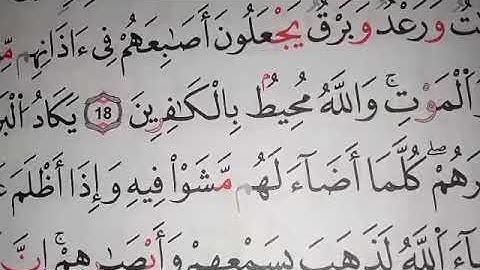 وَرَعْدٌ وَبَرْقٌ يَجْعَلُونَ أَصَٰبِعَهُمْ فِىٓ ءَاذَانِهِم
اَلْمَوْتِۚ وَاللَّهُ مُحِيطٌۢ بِالْكَٰفِرِينَ 18 يَكَادُ
رَهُمْۖ كُلَّمَآ أَضَآءَ لَهُم مَّشَوْاْ فِيهِ وَإِذَآ أَظْلَمَ
آءَ اَللَّهُ لَذَهَبَ بِسَمْعِهِمْ وَأَبْصَٰرِهِمْۚ إِنَّ